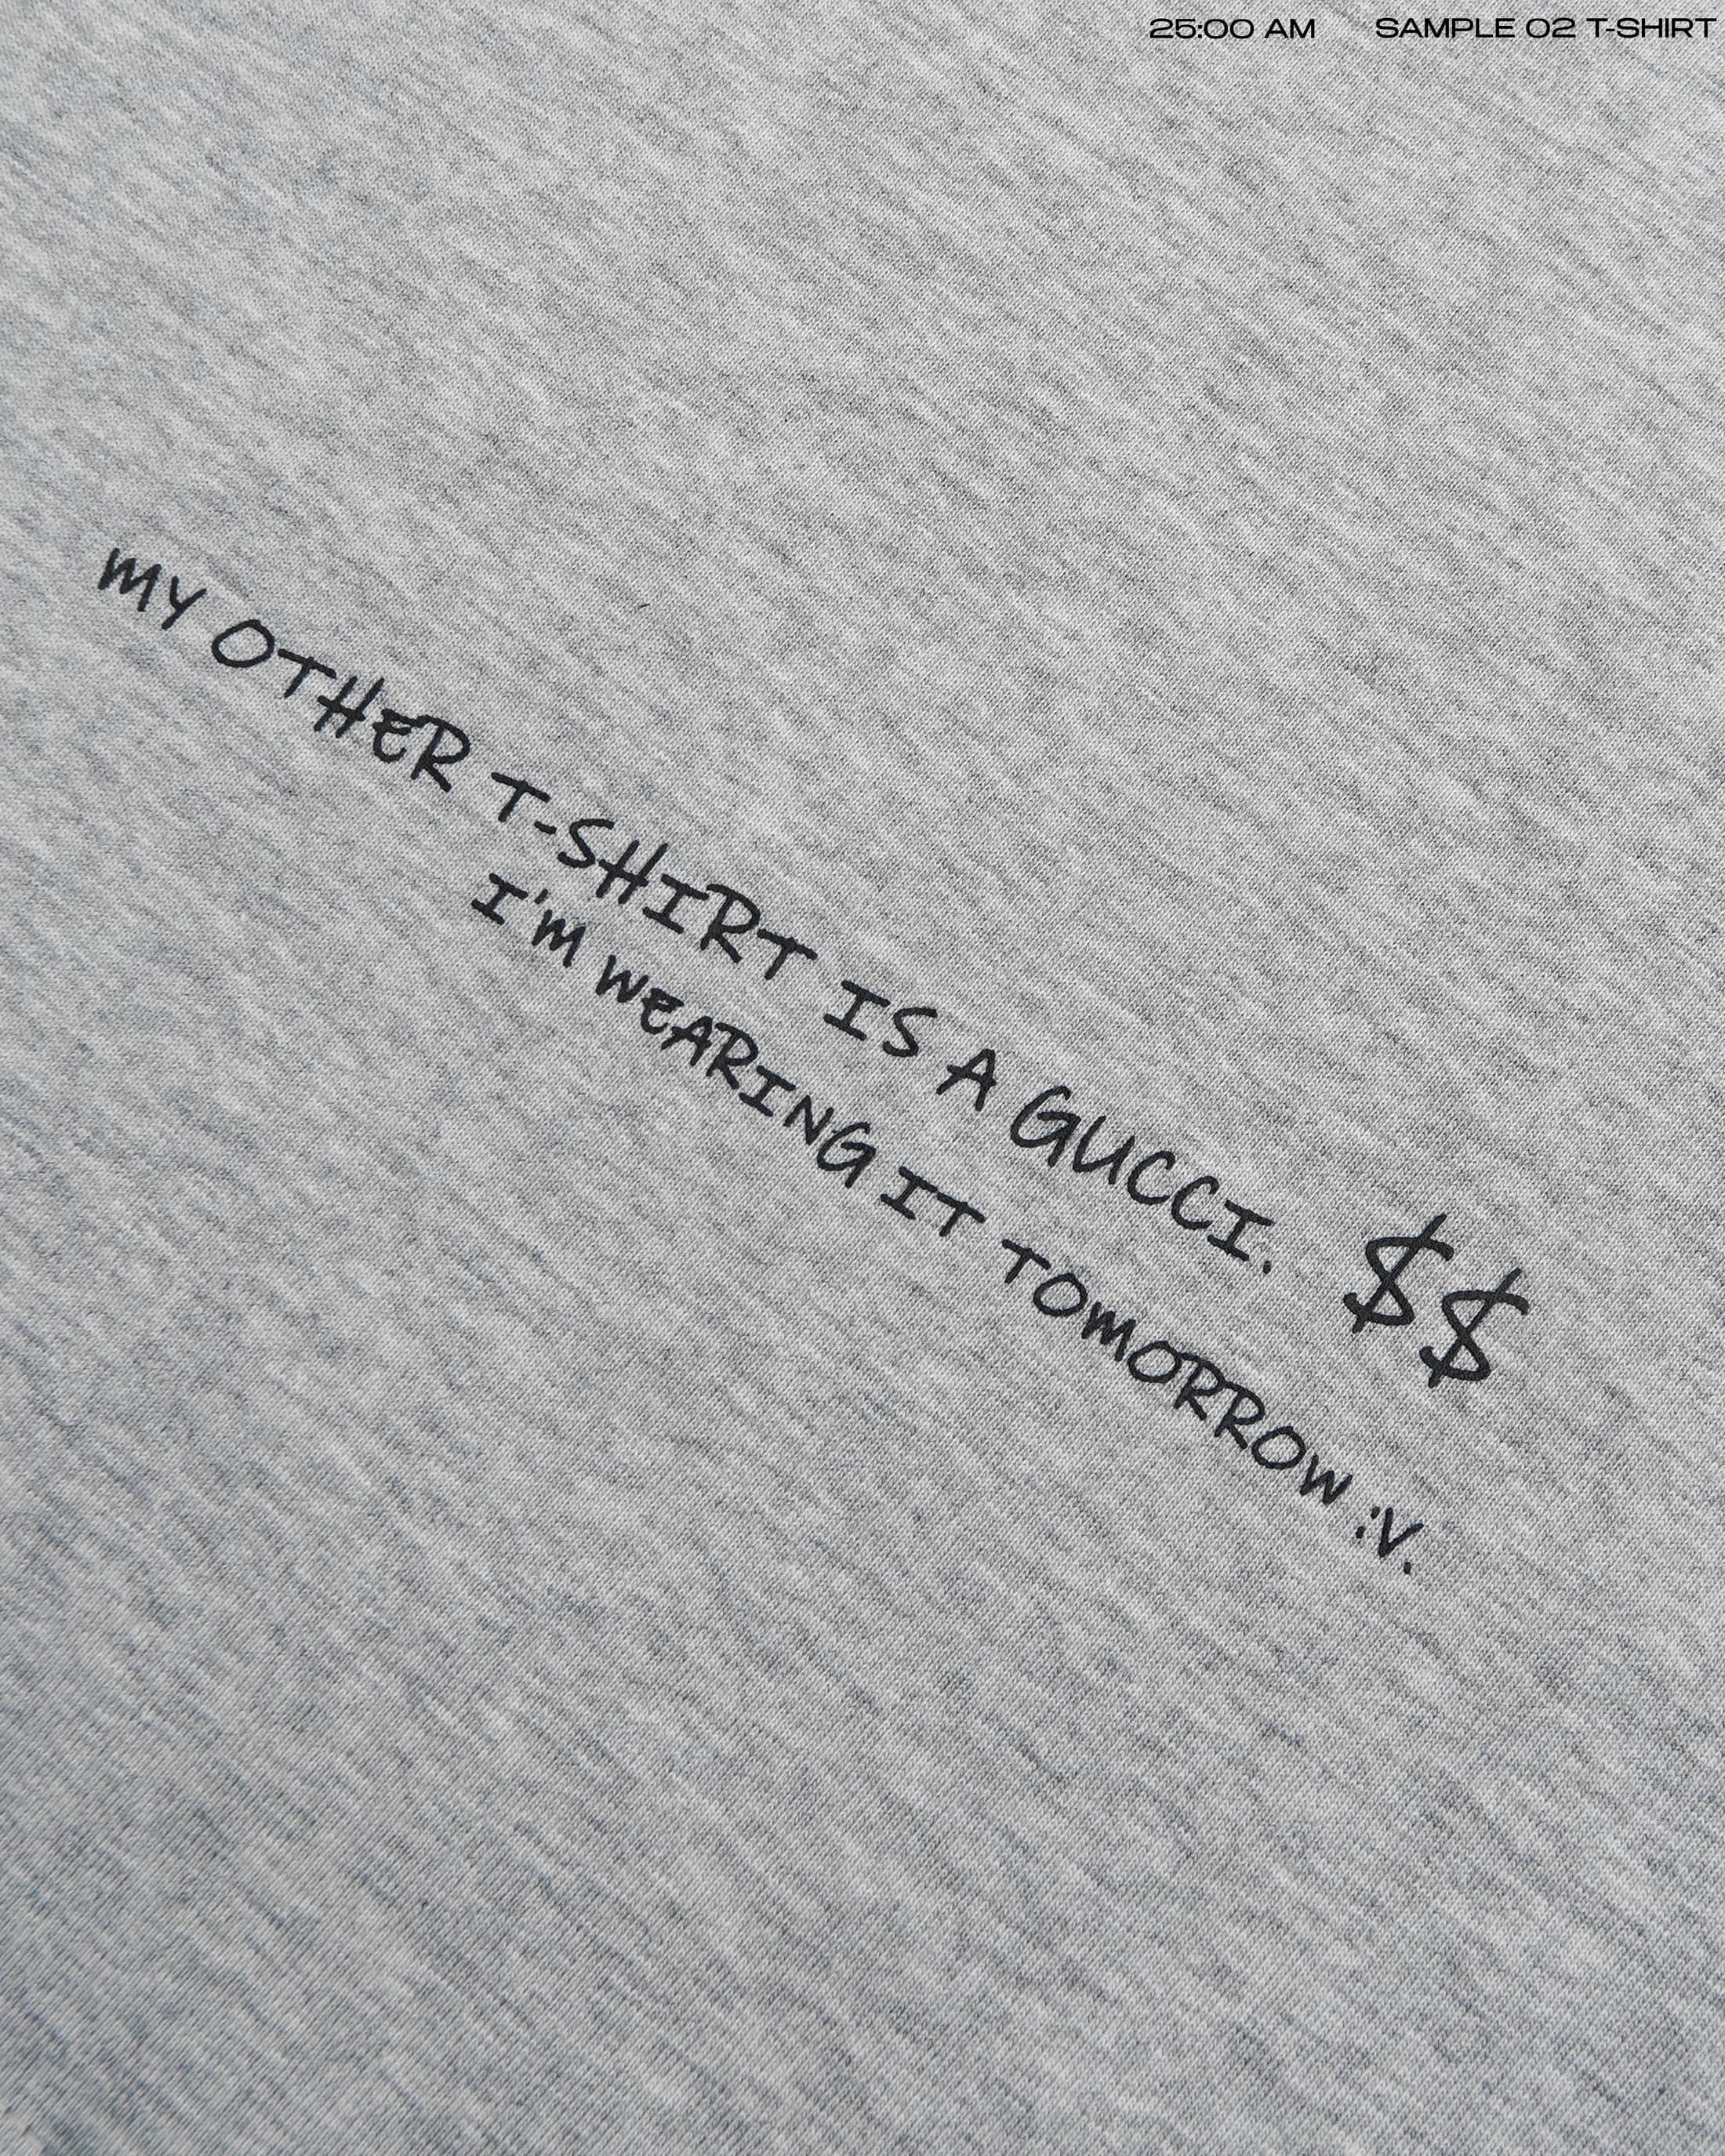 25:00 AM SAMPLE 02 T-SHIRT
MY OTHER T-SHIRT IS A GUCCI. $$
I'M WEARING IT TOMORROW :'V.